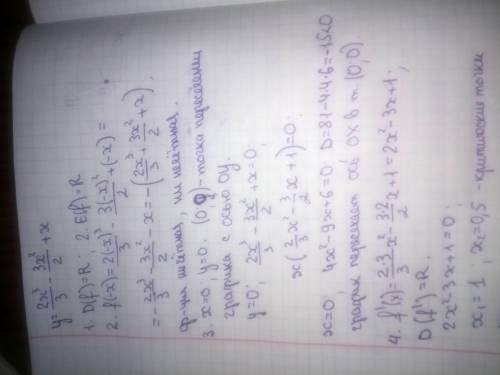 y = 2x³/3 - 3x²/2 + x
1. D(f)=R; 2. E(f)=R
2. f(-x) = 2(-x)³/3 - 3(-x)²/2 + (-x) =
= -2x³/3 - 3x²/2 - x = -(2x³/3 + 3x²/2 + x),
ф-ция ни чётная, ни нечётная.
3. x=0, y=0. (0;0) - точка пересечения
графика с осью Oy.
y=0; 2x³/3 - 3x²/2 + x = 0;
x(2/3 x² - 3/2 x + 1) = 0;
x=0; 4x²-9x+6=0; D=81-4·4·6=-15<0
график пересекает ось Ox в т. (0;0)
4. f'(x) = 2·3/3 x² - 3·2/2 x + 1 = 2x² - 3x + 1;
D(f')=R.
2x²-3x+1=0;
x₁=1, x₂=0,5 - критические точки